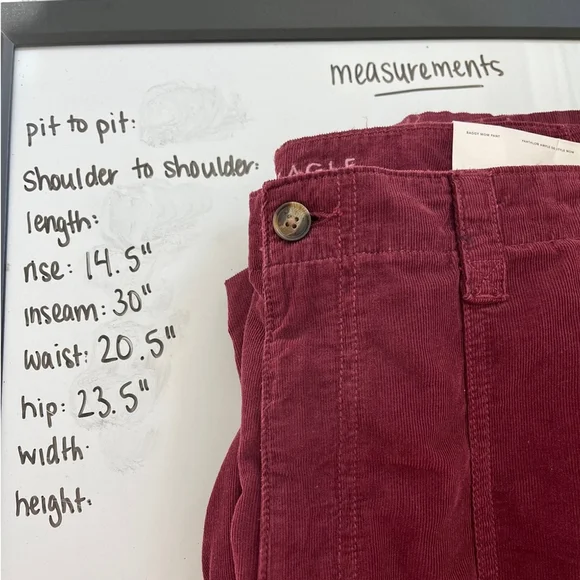 measurements
pit to pit:
Shoulder to shoulder:
length:
rise: 14.5"
inseam: 30"
waist: 20.5"
hip: 23.5"
width:
height:
AGLE